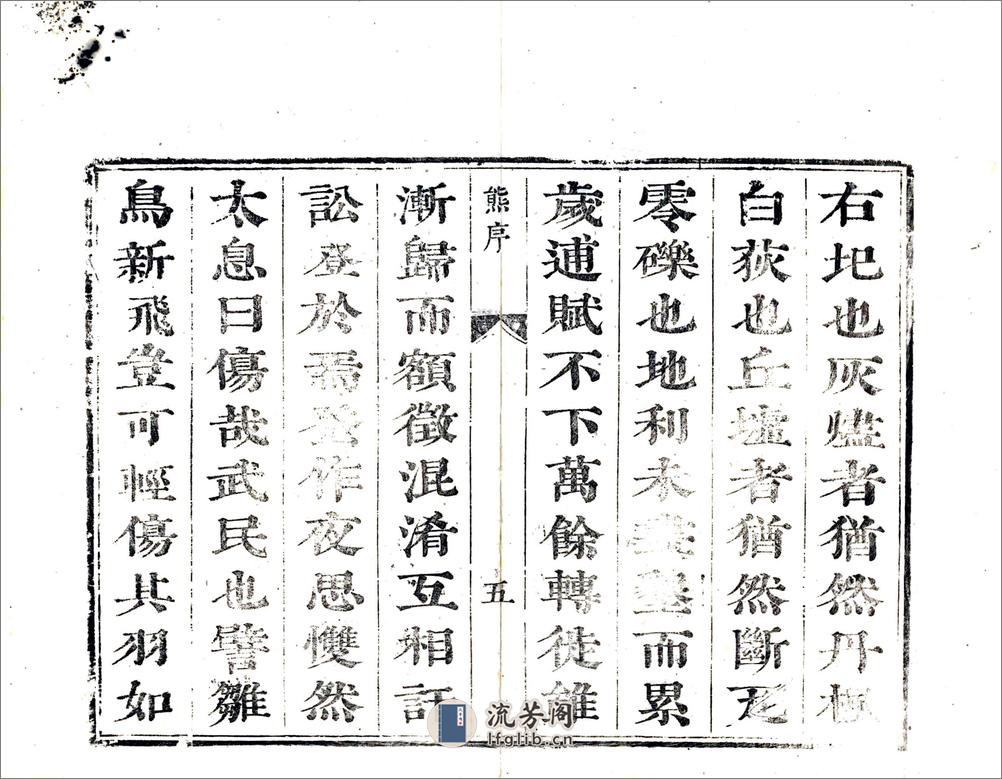 右圯也灰燼者猶然丹楓
白荻也丘墟者猶然斷瓦
零礫也地利未盡墾而累
歲逋賦不下萬餘轉徙雖
熊序
五
漸歸而額徵混淆互相訂
訟登於焉發作夜思懭然
太息曰傷哉武民也譬雛
鳥新飛豈可輕傷其羽如
流芳阁
lfglib.cn